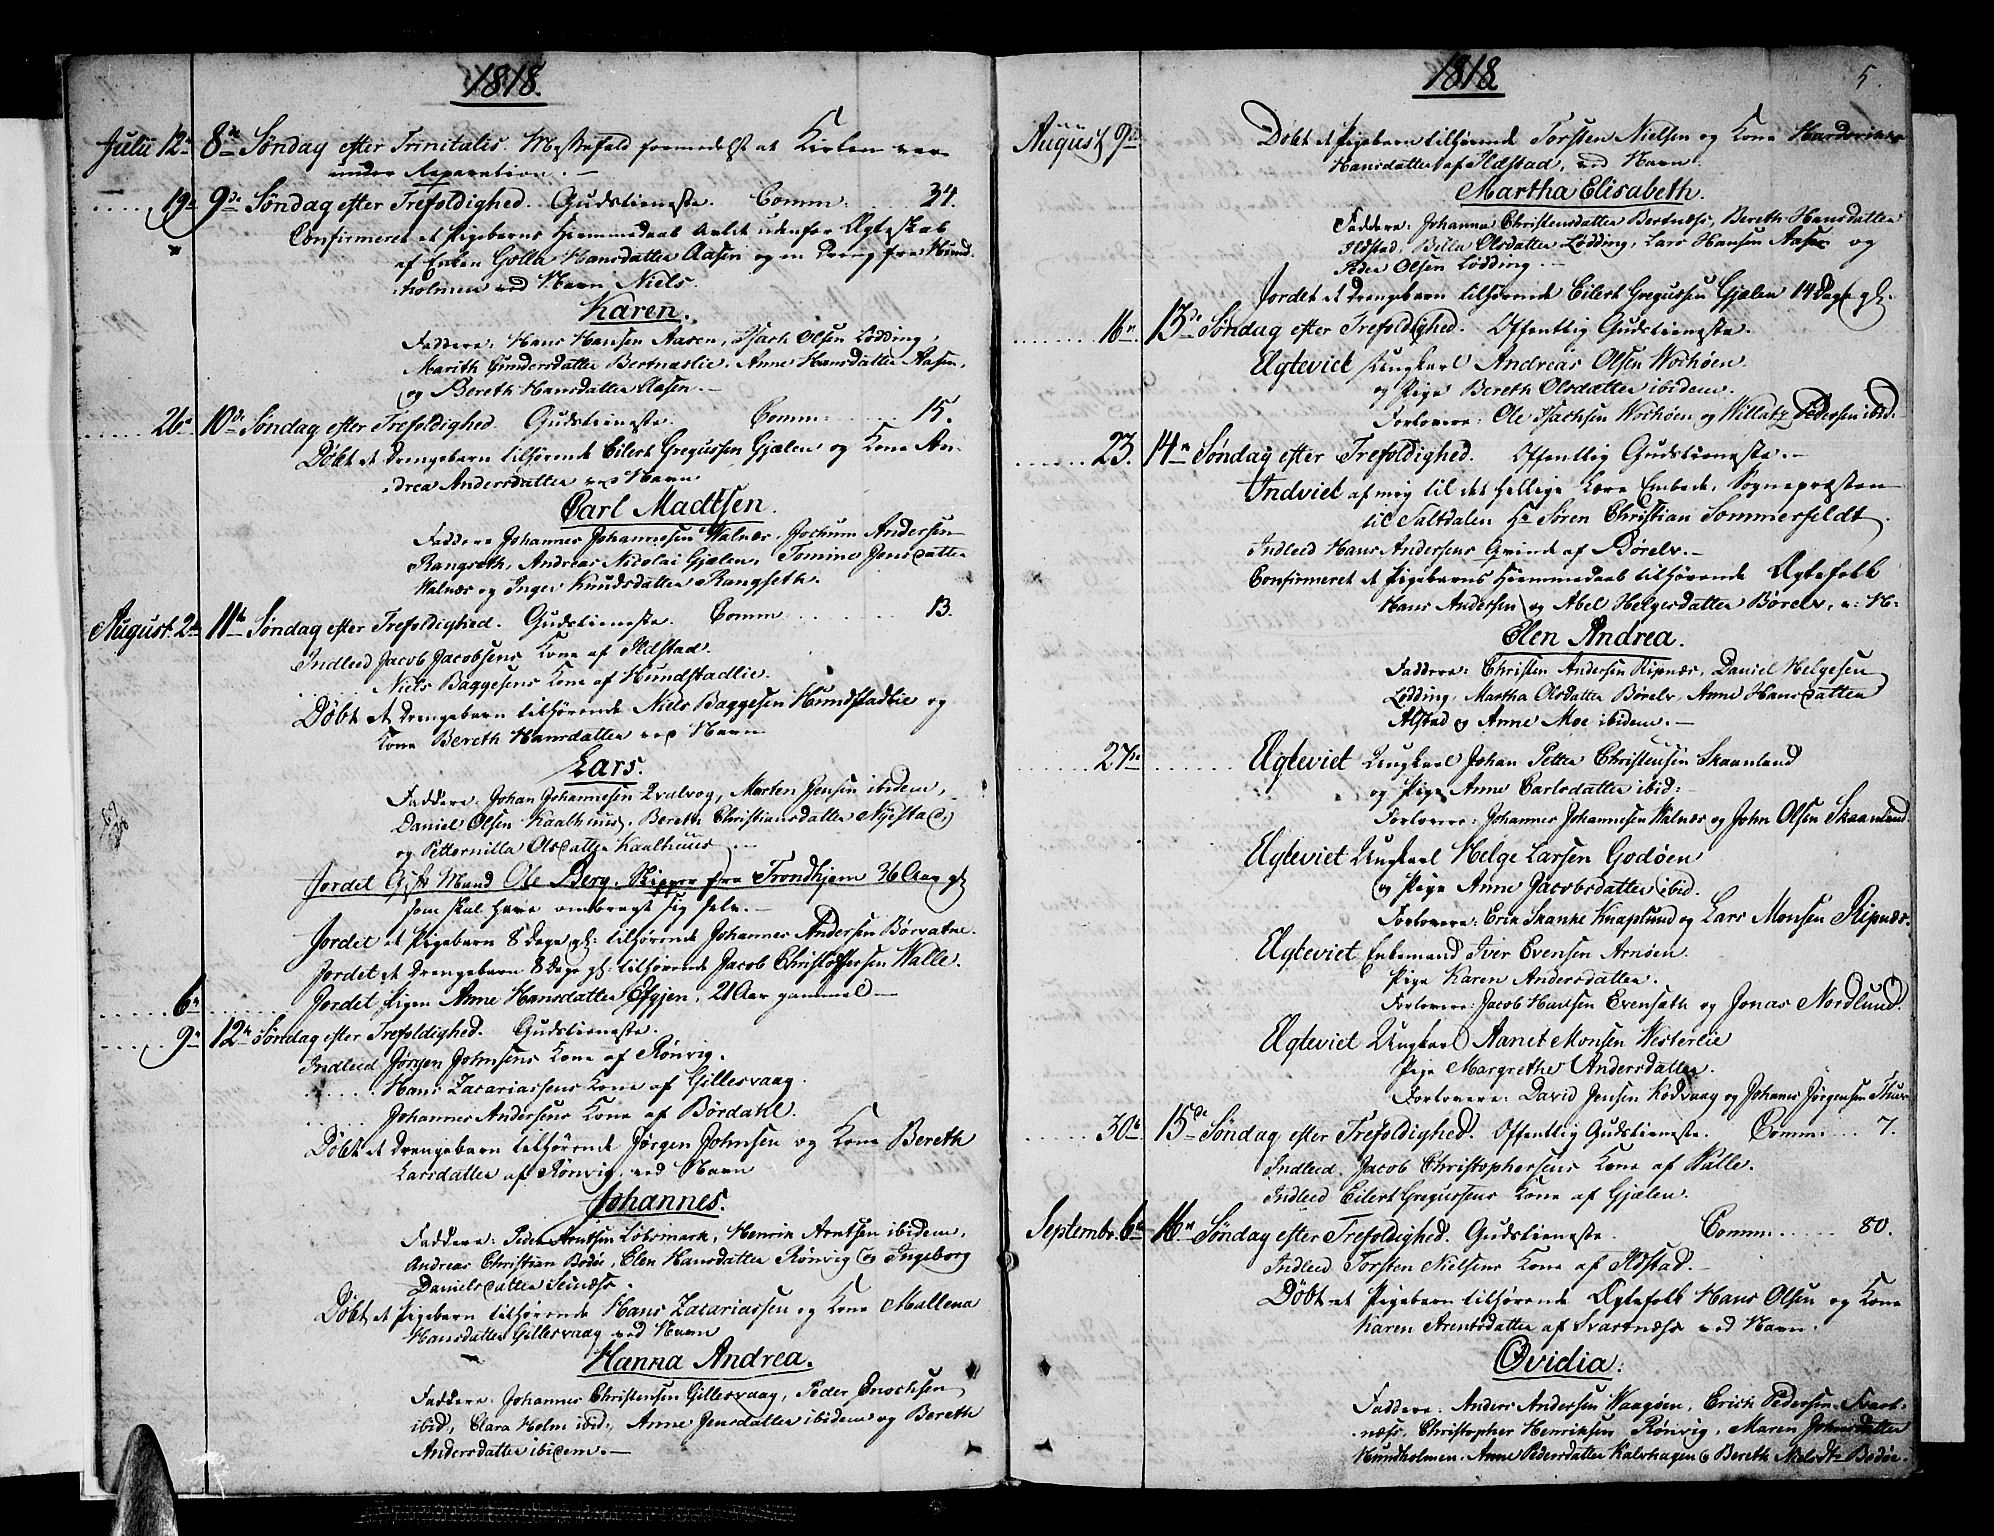 1818.
Julii 12te 8de Søndag efter Trinitatis. Messefald formedelst at Kirken var
under Reparation.
19de 9de Søndag efter Trefoldighed. Gudstieneste. Comm: 34.
Confirmeret et Pigebarns Hiemmedaab avlet udenfor Ægteskab
af Enken Golla Hansdatter Aasen og en Dreng fra Hund-
holmen ved Navn Niels.
Karen.
Faddere: Hans Hansen Aasen, Isach Olsen Lødding,
Marith Gundersdatter Bertnæslie, Anne Hansdatter Aasen,
og Bereth Hansdatter Aasen.
26de 10de Søndag efter Trefoldighed. Gudstieneste. Comm: 15.
Døbt et Drengebarn tilhørende Eilert Gregussen Gjælen og Kone An-
drea Andersdatter ved Navn
Carl Madtsen.
Faddere Johannes Johannesen Walnæs, Jochum Andersen
Rangseth, Andreas Nicolai Gjælen, Tomine Jensdatter
Walnæs og Inger Knudsdatter Rangseth.
August 2de 11te Søndag efter Trefoldighed. Gudstieneste. Comm: 13.
Indleed Jacob Jacobsens Kone af Ildstad.
Niels Baggesens Kone af Hundstadlie.
Døbt et Drengebarn tilhørende Niels Baggesen Hundstadlie og
Kone Bereth Hansdatter ved Navn
Lars.
Faddere: Johan Johannesen Qvalvog, Morten Jensen ibidem,
Daniel Olsen Kaalhuus, Bereth Christiansdatter Nyestad,
og Petternilla Olsdatter Kaalhuus.
Jordet Gift Mand Ole Berg, Skipper fra Trondhjem 36 Aar gl:
som skal have ombragt sig selv.
Jordet et Pigebarn 8 Dage gl: tilhørende Johannes Andersen Børvatne.
Jordet et Drengebarn 8 Dage gl: tilhørende Jacob Christophersen Walle.
6te Jordet Pigen Anne Hansdatter Efgjen, 21 Aar gammel
9de 12te Søndag efter Trefoldighed. Gudstieneste.
Indleed Jørgen Johnsens Kone af Rønvig.
Hans Zacariassens Kone af Gillesvaag.
Johannes Andersens Kone af Børdahl.
Døbt et Drengebarn tilhørende Jørgen Johnsen og Kone Bereth
Larsdatter af Rønvig, ved Navn
Johannes.
Faddere: Peder Arntsen Løbsmark, Henrik Arntsen ibidem,
Andreas Christian Bodøe, Elen Hansdatter Rønvig og Ingeborg
Danielsdatter Seinæss.
Døbt et Pigebarn tilhørende Hans Zacariassen og Kone Mallena
Hansdatter Gillesvaag ved Navn
Hanna Andrea.
Faddere: Johannes Christensen Gillesvaag, Peder Enochsen
ibid, Clara Holm ibid:, Anne Jensdatter ibidem og Bereth
Andersdatter ibidem.
1818
5.
August 9de Døbt et Pigebarn tilhørende Torsten Nielsen og Kone
Hansdatter af Ildstad, ved Navn.
Martha Elisabeth.
Faddere: Johanna Christensdatter Bertnæss, Bereth Hansdatter
Ildstad, Billa Olsdatter Lødding, Lars Hansen Aasen og
Peder Olsen Lødding.
Jordet et Drengebarn tilhørende Eilert Gregussen Gjælen 14 Dage gl.
16de 13de Søndag efter Trefoldighed. Offentlig Gudstieneste.
Ægteviet Ungkarl Andreas Olsen Wochøen
og Pige Bereth Olsdatter ibidem.
Forlovere: Ole Isachsen Wochøen og Willatz Pedersen ibid:
23. 14de Søndag efter Trefoldighed. Offentlig Gudstieneste.
Indviet af mig til det hellige Lære Embede, Sognepræsten
til Saltdalen Hr Søren Christian Sommerfeldt.
Indleed Hans Andersens Qvinde af Børelv.
Confirmeret et Pigebarns Hiemmedaab tilhørende Ægtefolk
Hans Andersen og Abel Helgesdatter Børelv, v: N:
Elen Andrea.
Faddere: Christen Andersen Ripnæs, Daniel Helgesen
Lødding, Martha Olsdatter Børelv, Anne Hansdatter
Alstad og Anne Moe ibidem.
27de Ægteviet Ungkarl Johan Petter Christensen Skaanland
og Pige Anne Carlsdatter ibid:
Forlovere: Johannes Johannesen Walnæs og John Olsen Skaanland.
Ægteviet Ungkarl Helge Larsen Godøen
og Pige Anne Jacobsdatter ibid.
Forlovere: Erik Skanke Knaplund og Lars Monsen Ripnæs.
Ægteviet Enkemand Iver Evensen Arnøen
Pige Karen Andersdatter.
Forlovere: Jacob Hansen Evensæth og Jonas Nordlund.
Ægteviet Ungkarl Aanet Monsen Westerlie
Pige Margrethe Andersdatter.
Forlovere: David Jensen Kodvaag og Johanes Jørgensen
30te 15de Søndag efter Trefoldighed. Offentlig Gudstieneste. Comm: 7.
Indleed Jacob Christophersens Kone af Walle.
Indleed Eilert Gregussens Kone af Gjælen.
Septembr. 6te 16de Søndag efter Trefoldighed. Gudstieneste. Comm: 80.
Indleed Torsten Nielsens Kone af Ildstad.
Døbt et Pigebarn tilhørende Ægtefolk Hans Olsen og Kone
Karen Arentsdatter af Svartnæss ved Navn.
Ovidia.
Faddere: Anders Andersen Waagøen, Erich Pedersen Svart-
næss, Christopher Henriksen Rønvig, Maren Johnsdatter
Hundholmen, Anne Pedersdatter Kalvhagen & Bereth Nielsdtr Bodøe.